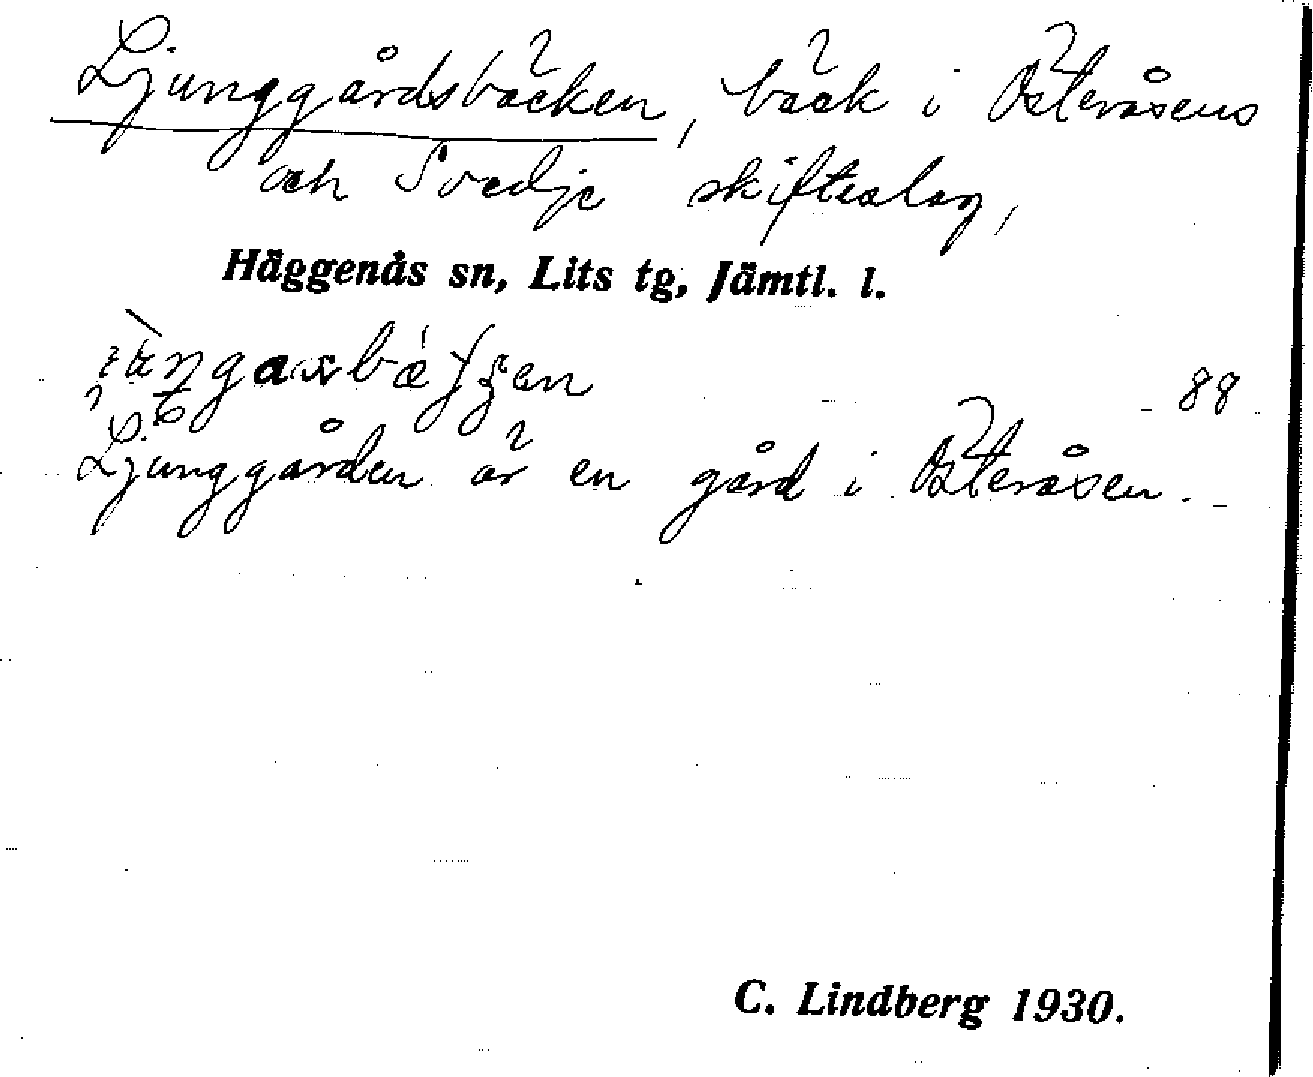 Ljunggårdsbäcken, bäck i Österåsens
och Svedje skifteslag,
Häggenås sn, Lits tg, Jämtl. l.
88
Ljunggården är en gård i Österåsen.
C. Lindberg 1930.